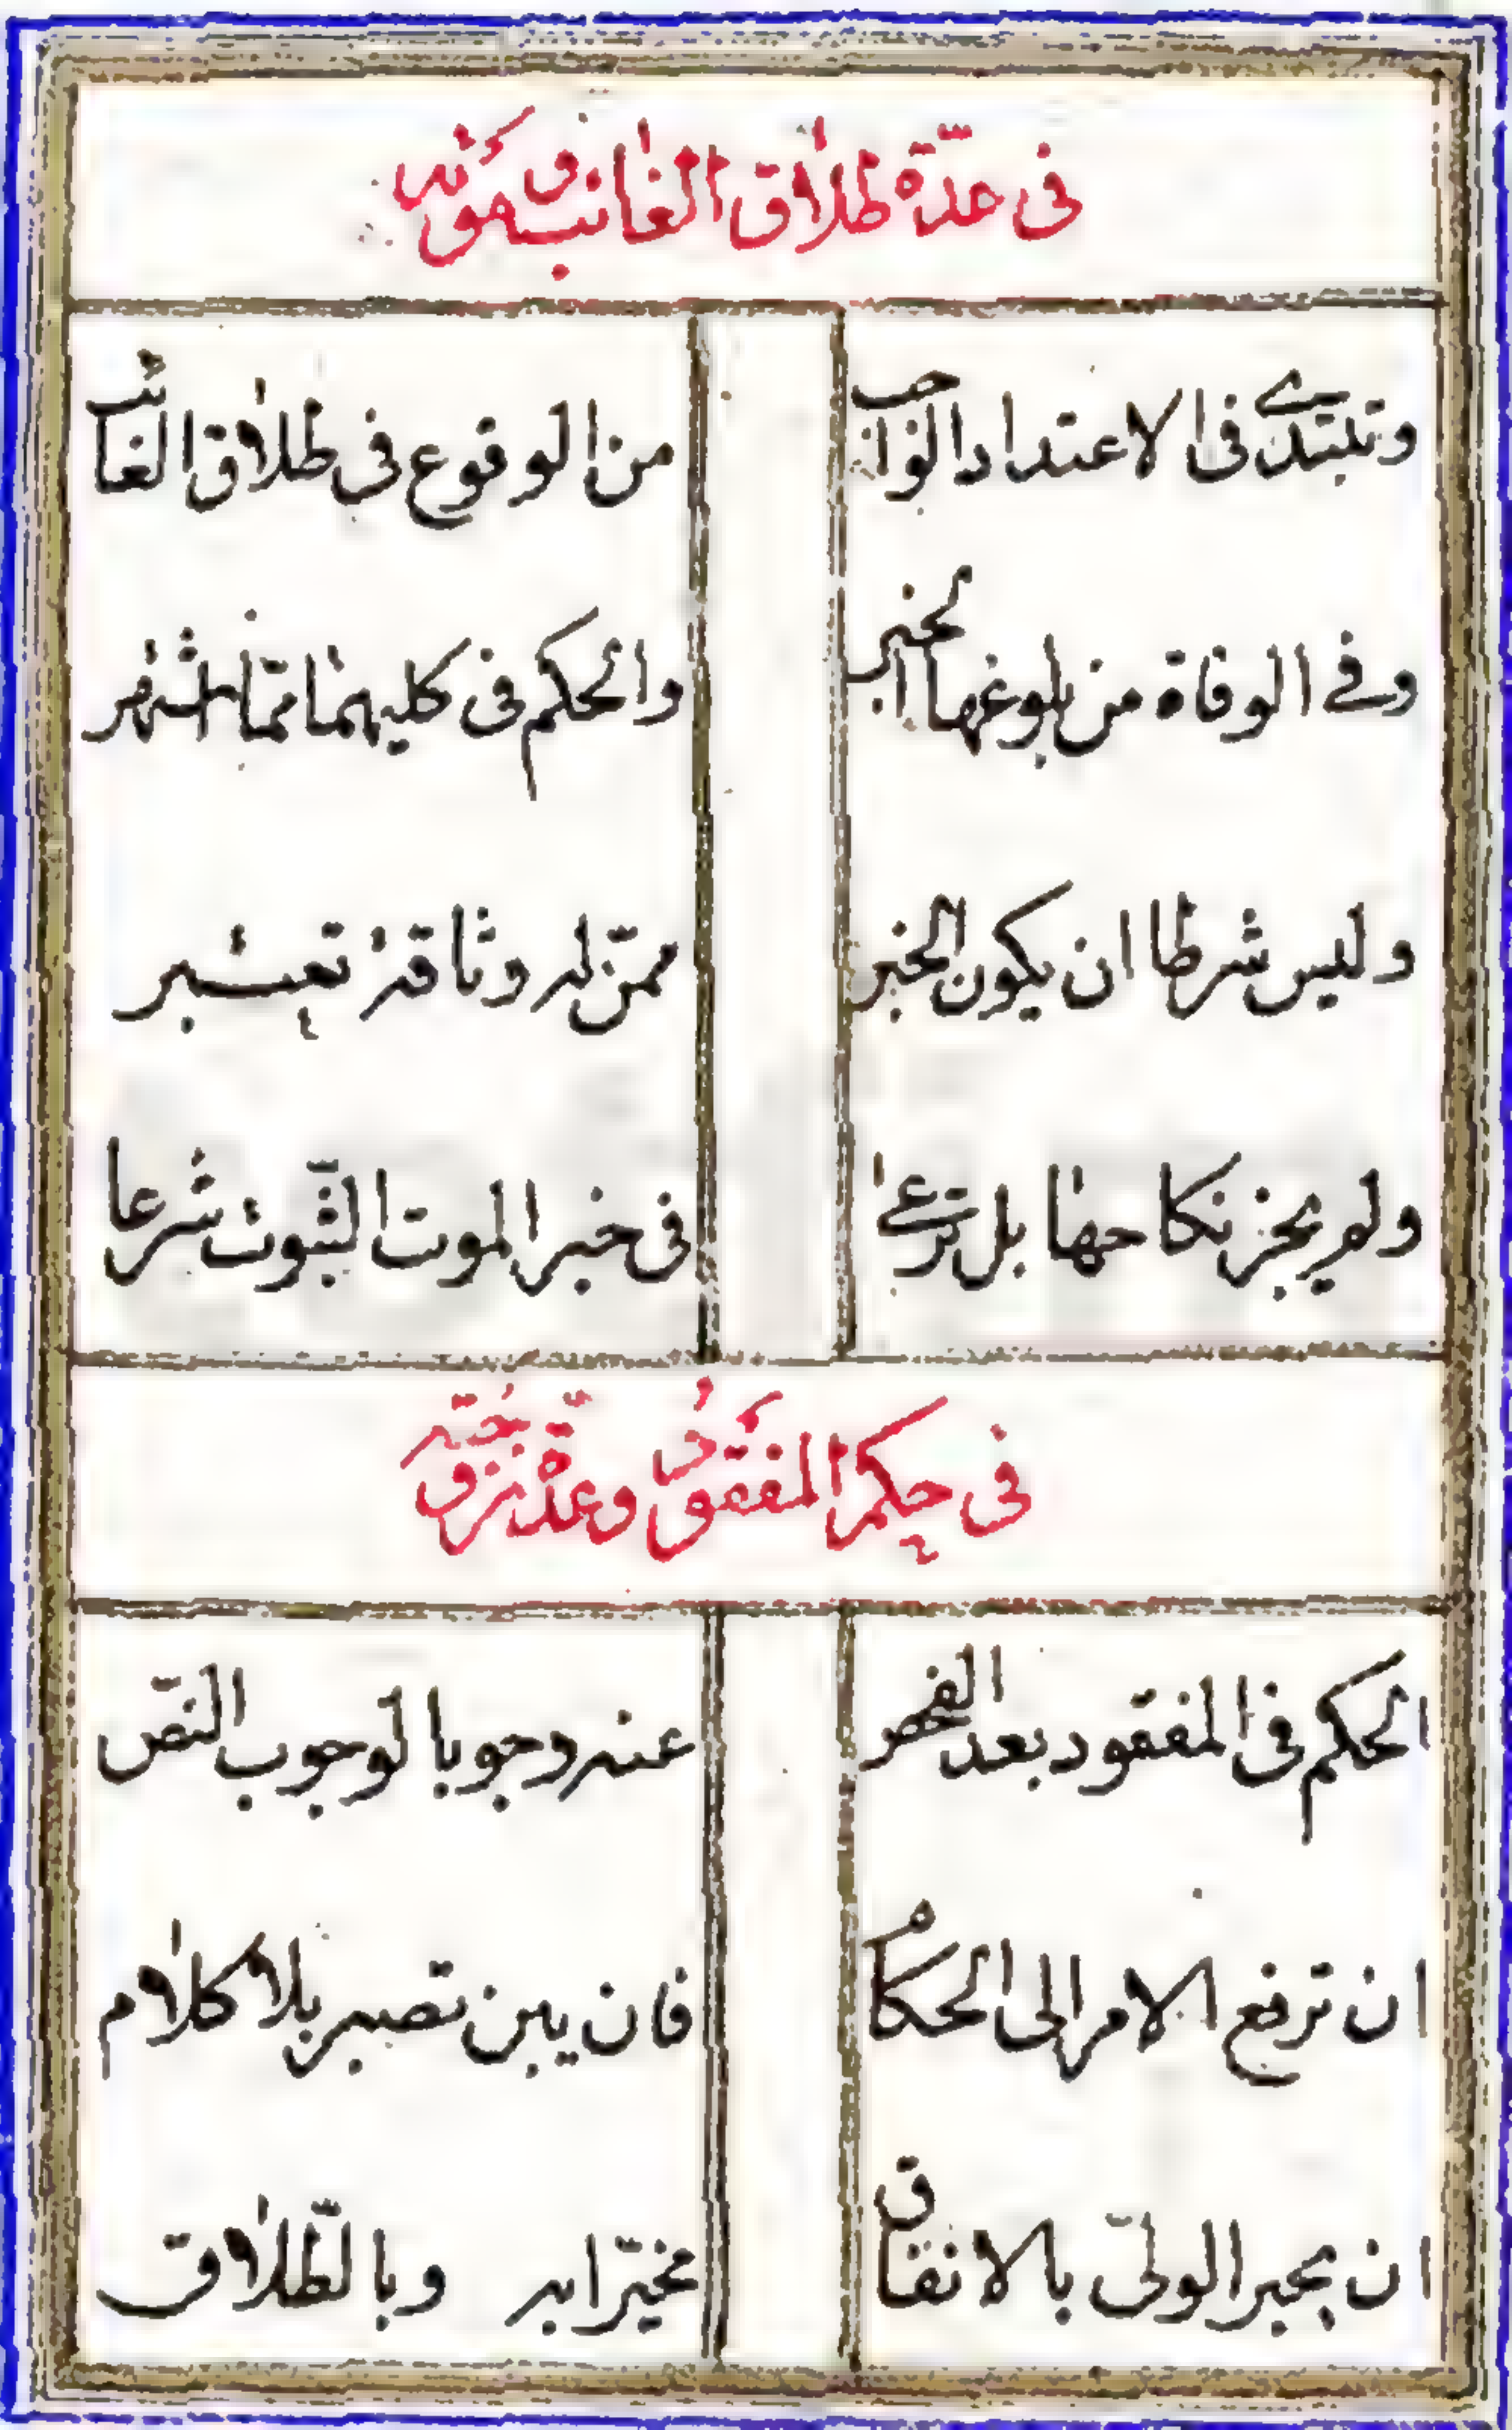 فى عدّة طلاق الغائب وموته
وتبتدى فى الاعتداد الواجب من الوقوع فى طلاق الغائب
وفى الوفاة من بلوغها الخبر والحكم فى كليهما ممّا اشتهر
وليس شرطا ان يكون الخبر ممّن له وثاقة تعتبر
ولم يجز نكاحها بل ترعى فى خبر الموت الثّبوت شرعا
فى حكم المفقود وعدّة زوجته
الحكم فى المفقود بعد الفحص عنه وجوبا لوجوب النّص
ان ترفع الامر الى الحكام فان يبن تصبر بلا كلام
ان يجبر الولىّ بالانفاق مخيّرا به وبالطّلاق